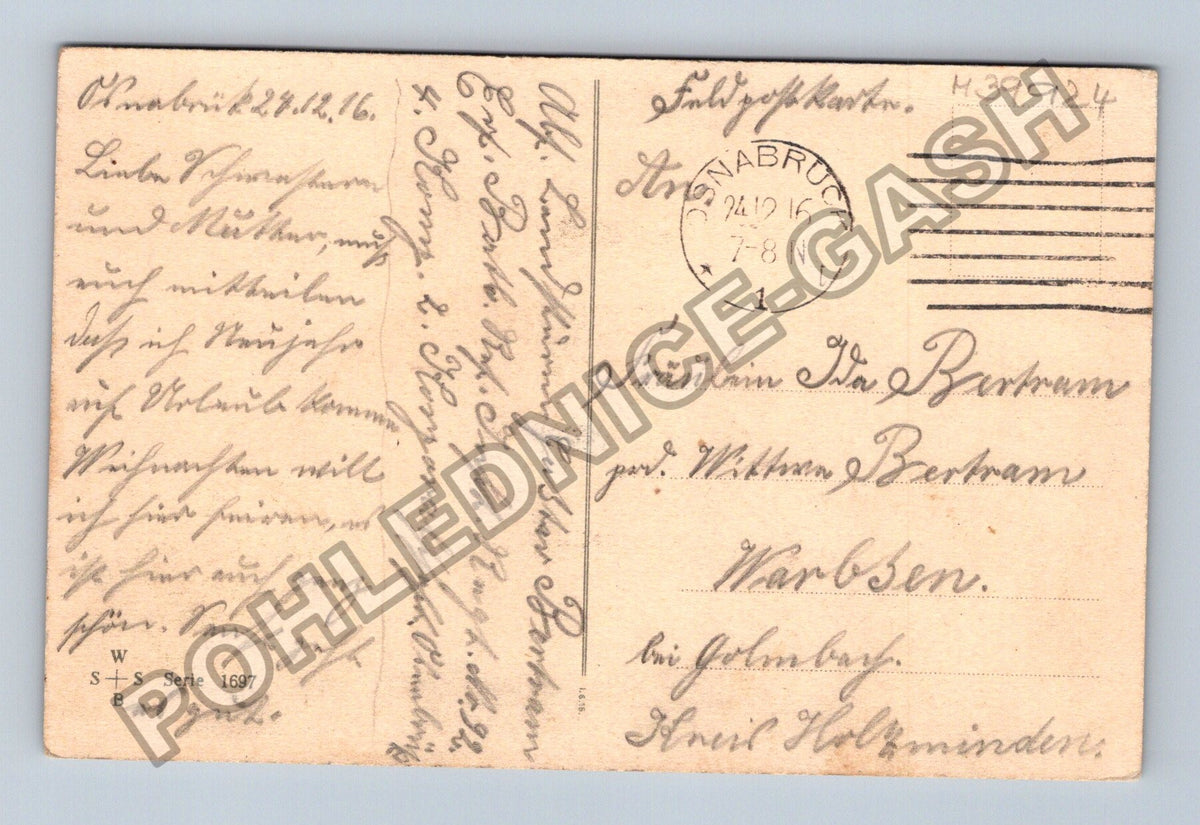 Osnabrük 24.12.16.
Liebe Schwestern
und Mutter, muß
euch mitteilen
daß ich Neujahr
auf Urlaub komme
Weihnachten will
ich hier feiern, es
ist hier auch ganz
schön. Sonst
geht
es gut.
W
S S Serie 1697
B
Abs. Landsturm Bertram
Ers. Batl. Inf. Regt. Nr. 92
4. Komp. 2. Korp.
Osnabrük
1.6.16.
Feldpostkarte.
H399124
An
OSNABRÜCK
24.12.16
7-8 N
1
Fräulein Ida Bertram
Wittwe Bertram
Warbsen.
bei Golmbach.
Kreis Holzminden.
POHLEDNICE-GASH